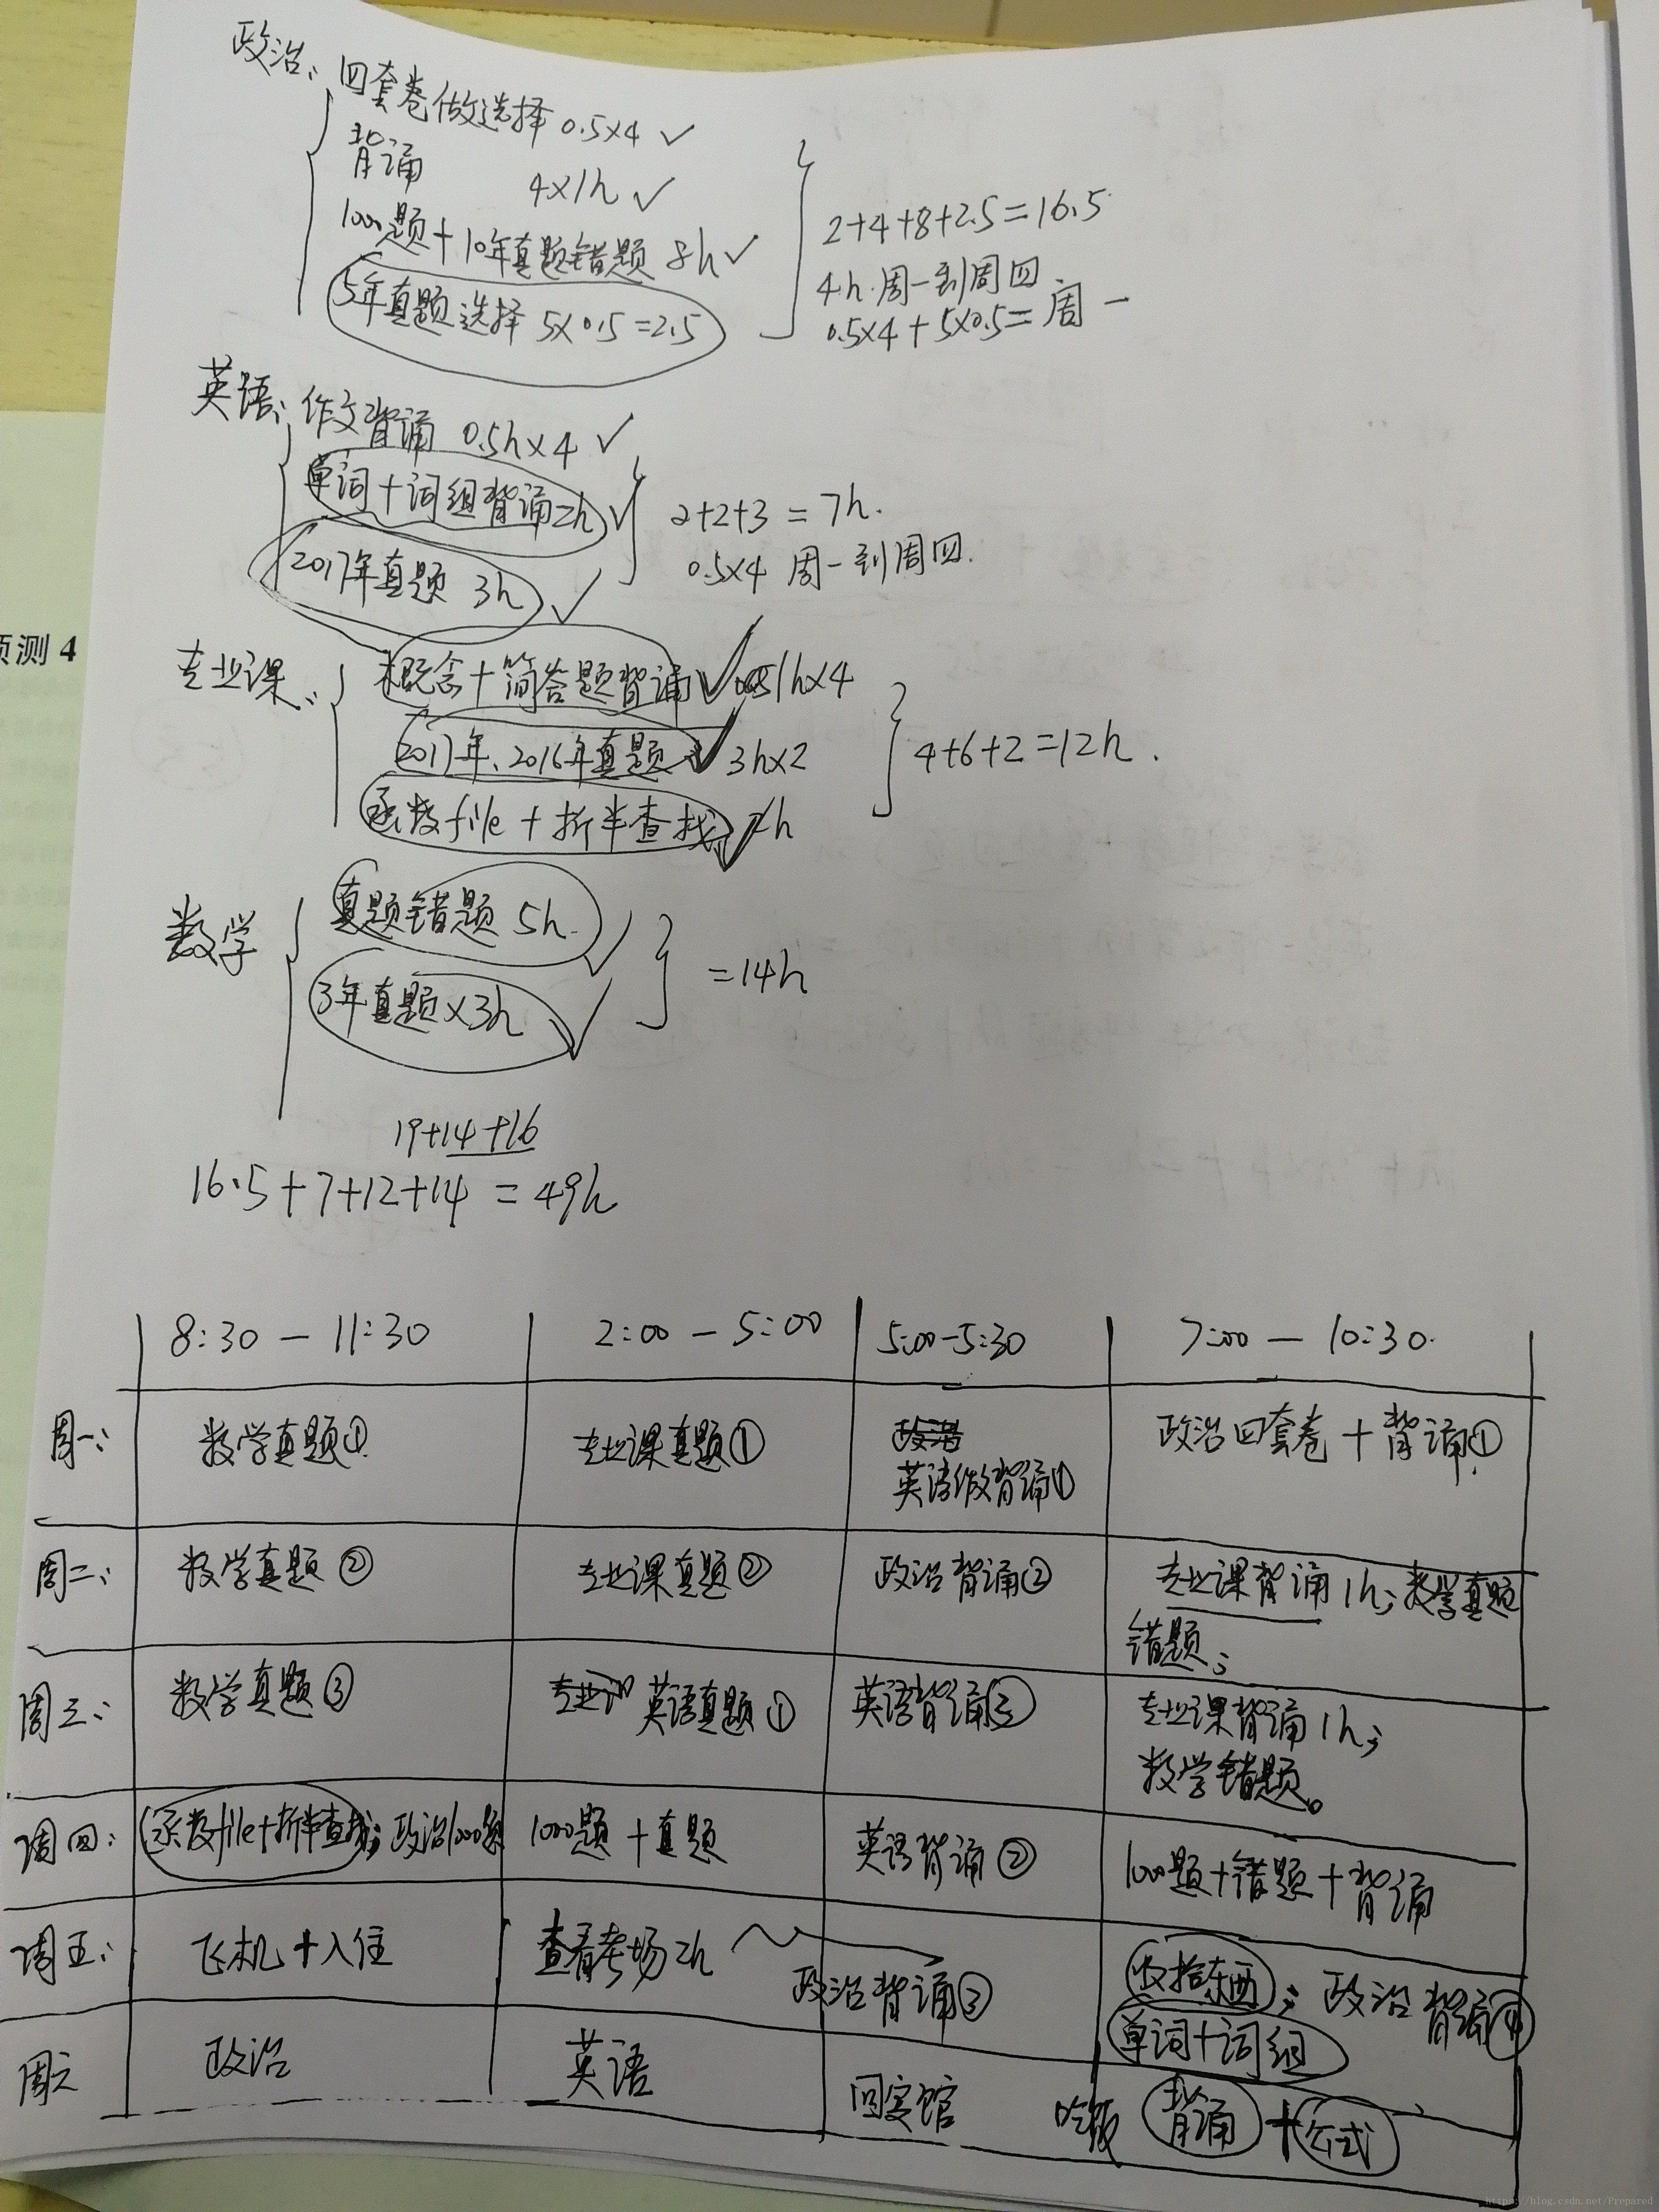 政治: 四套卷做选择 0.5×4 ✓
背诵 4×1h ✓
1000题+10年真题错题 8h ✓
5年真题选择 5×0.5=2.5
2+4+8+2.5=16.5
4h 周一到周四
0.5×4+5×0.5= 周一
英语: 作文背诵 0.5h×4 ✓
单词+词组背诵2h ✓
2017年真题 3h ✓
2+2+3=7h.
0.5×4 周一到周四.
预测 4
专业课: 概念+简答题背诵 ✓ 1h×4
2017年、2016年真题 ✓ 3h×2
函数file+折半查找 ✓ 2h
4+6+2=12h.
数学 真题错题 5h. ✓
3年真题×3h ✓
=14h
19+14+16
16.5+7+12+14=49h
8:30—11:30 2:00—5:00 5:00-5:30 7:00—10:30.
周一: 数学真题① 专业课真题① 政治 英语作文背诵① 政治四套卷+背诵①
周二: 数学真题② 专业课真题② 政治背诵② 专业课背诵1h; 数学真题
错题;
周三: 数学真题③ 专业课 英语真题① 英语背诵② 专业课背诵1h;
数学错题。
周四: 函数file+折半查找; 政治1000题 1000题+真题 英语背诵② 1000题+错题+背诵
周五: 飞机+入住 查看考场2h 政治背诵③ 收拾东西; 政治背诵④
单词+词组
周六 政治 英语 回宾馆 吃饭 背诵+公式
https://blog.csdn.net/Prepared